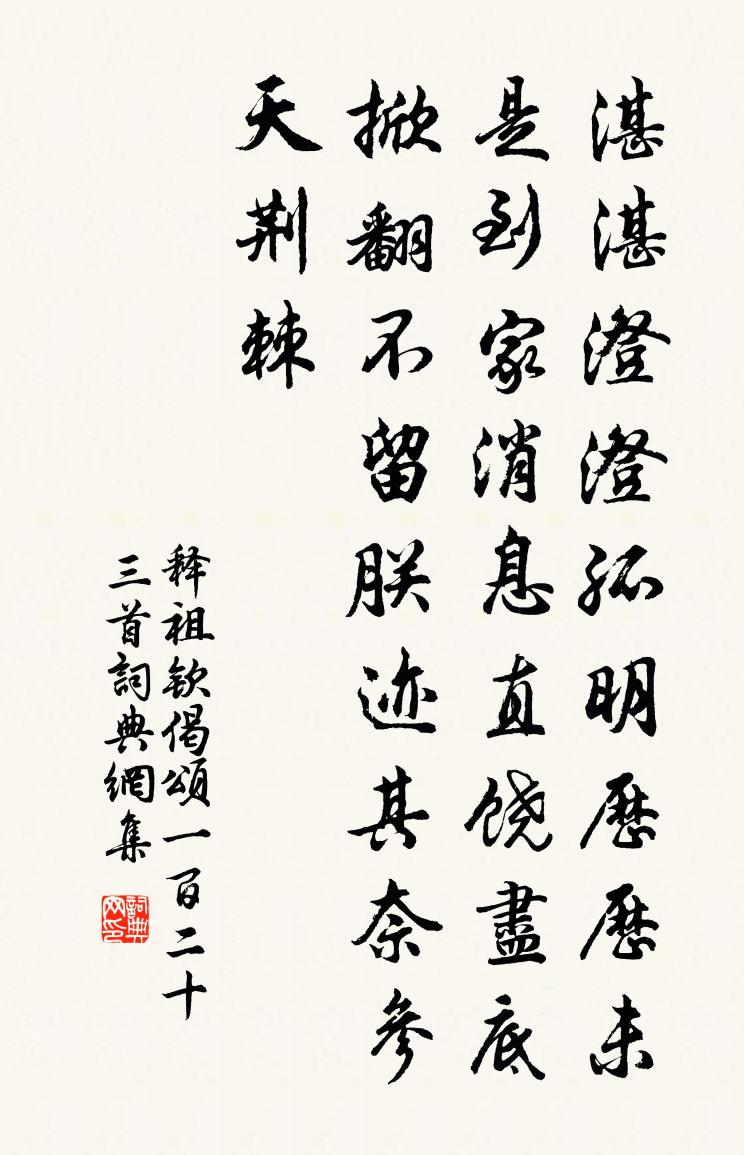 湛湛澄澄孤明歷歷未
是到家消息直饶盡底
掀翻不留朕迹其奈參
天荆棘
释祖欽偈頌一百二十
三首詞典網集
詞典网印